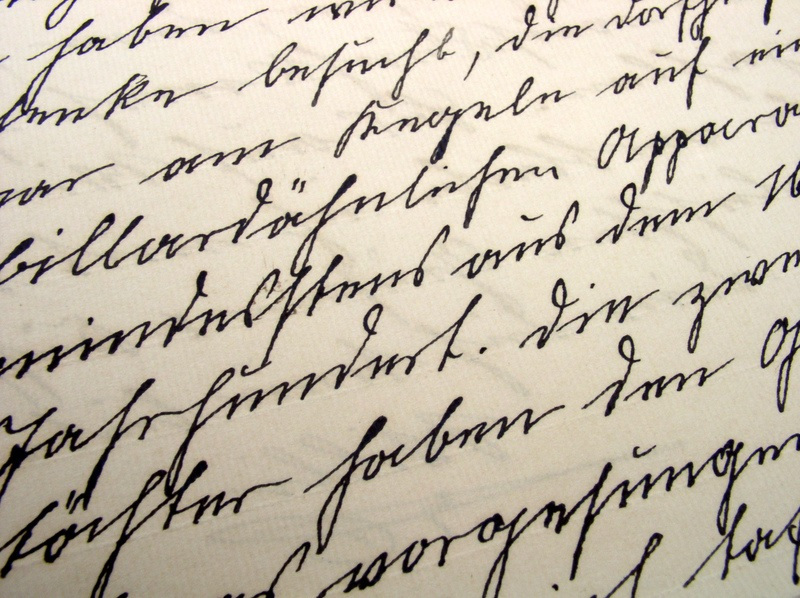 haben wir
besucht, die dorfsch
war am Kegeln auf ein
billardähnlichen Appara
mindestens aus dem 16
Jahrhundert. die zwe
töchter haben den G
vorgesungen